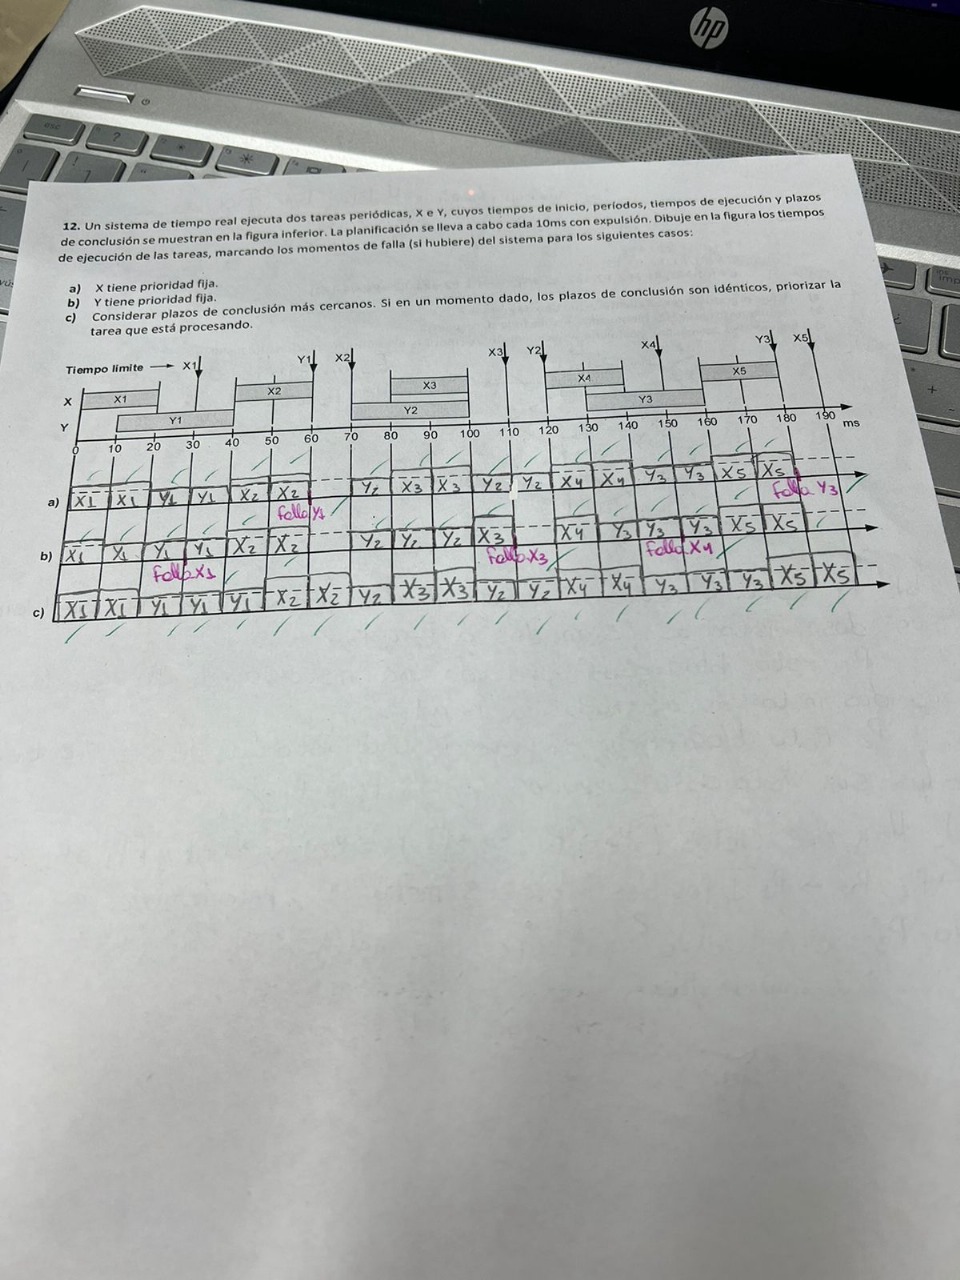 hp
esc
?
!
12. Un sistema de tiempo real ejecuta dos tareas periódicas, X e Y, cuyos tiempos de inicio, períodos, tiempos de ejecución y plazos
de conclusión se muestran en la figura inferior. La planificación se lleva a cabo cada 10ms con expulsión. Dibuje en la figura los tiempos
de ejecución de las tareas, marcando los momentos de falla (si hubiere) del sistema para los siguientes casos:
a) X tiene prioridad fija.
b) Y tiene prioridad fija.
c) Considerar plazos de conclusión más cercanos. Si en un momento dado, los plazos de conclusión son idénticos, priorizar la
tarea que está procesando.
Tiempo límite X1 Y1 X2 X3 Y2 X4 Y3 X5
X X1 X2 X3 X4 X5
Y Y1 Y2 Y3
0 10 20 30 40 50 60 70 80 90 100 110 120 130 140 150 160 170 180 190 ms
a) X1 X1 Y1 Y1 X2 X2 Y2 X3 X3 Y2 Y2 X4 X4 Y3 Y3 X5 X5
Falla Y1 Falla Y3
b) X1 Y1 Y1 Y1 X2 X2 Y2 Y2 Y2 X3 X4 Y3 Y3 Y3 X5 X5
Falla X1 Falla X3 Falla X4
c) X1 X1 Y1 Y1 Y1 X2 X2 Y2 X3 X3 Y2 Y2 X4 X4 Y3 Y3 Y3 X5 X5